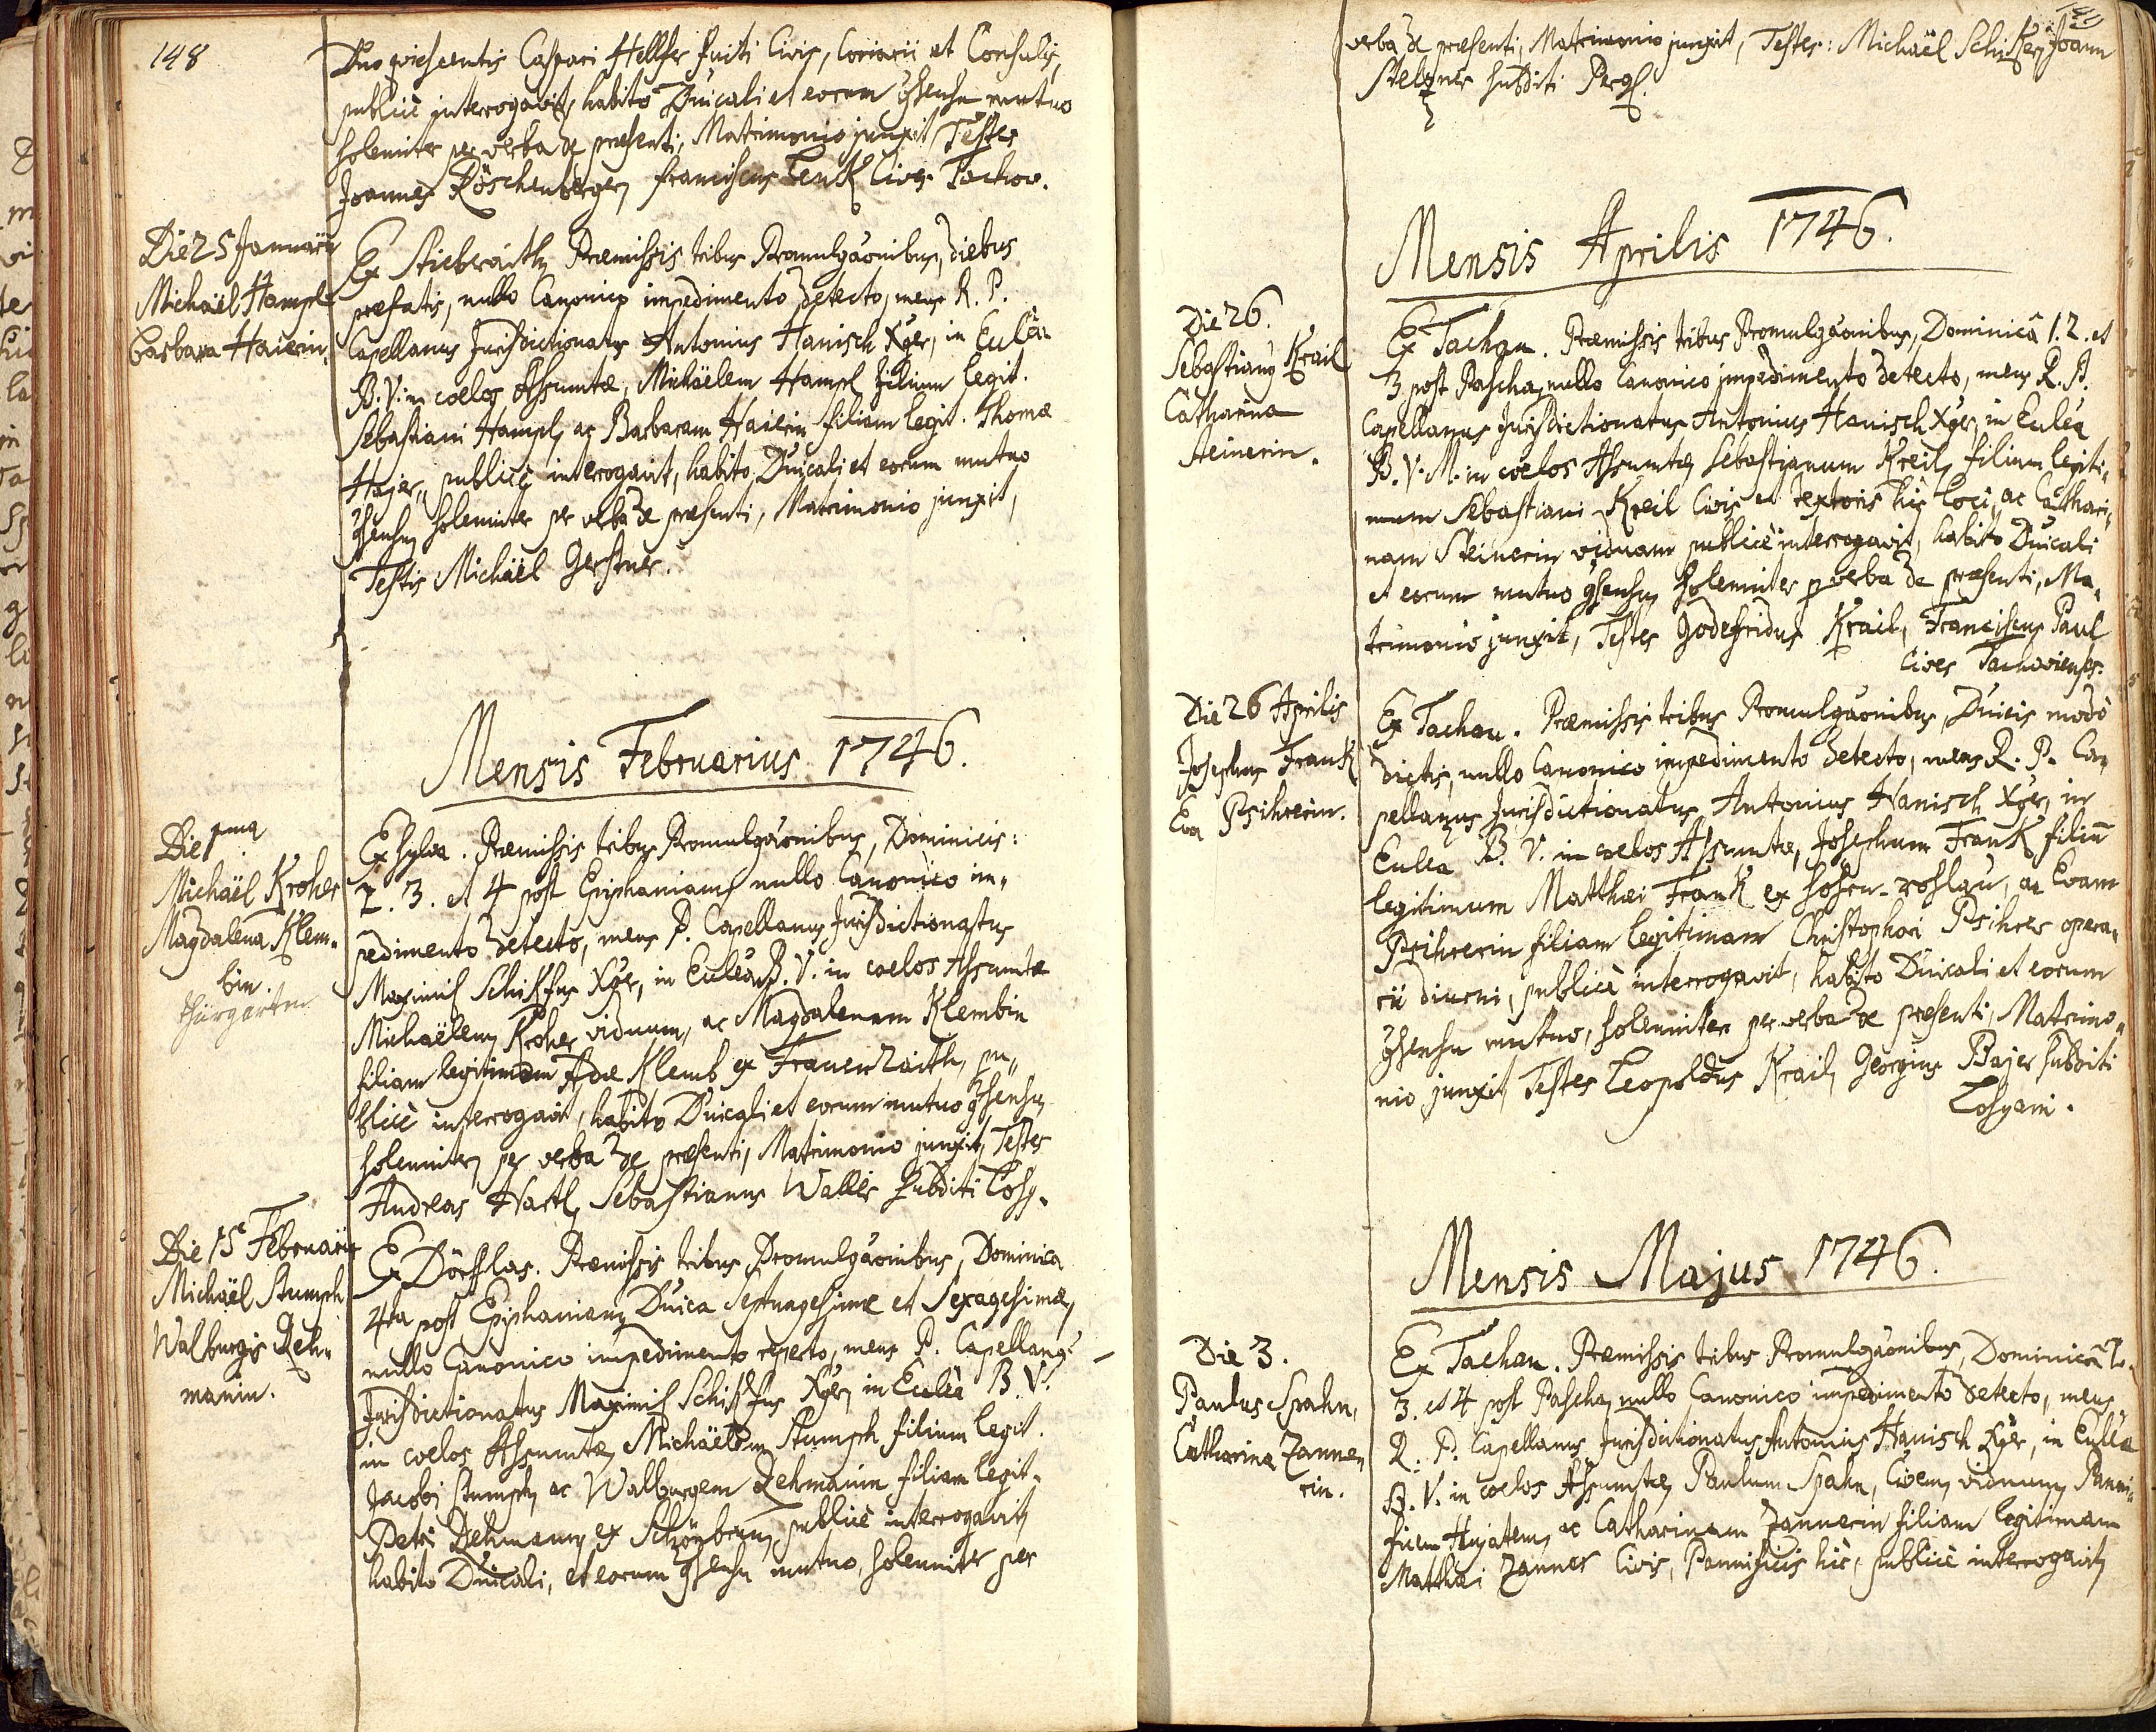 148
Dno quiescentis Caspari Hellfer fuiti Civis, Coriarii et Consulis,
publicè interrogavit, habito Dũicali et eorum ɔsensu mutuo
solemniter per verba de præsenti, Matrimonio junxit Testes
Joannes Röschenberger, franciscus Lenk Cives Tachov.
Die 25 Januarii
Michaël Hampl
Barbara Haierin.
Ex Stiebraith, Præmissis tribus Promulgãonibus, diebus
præfatis, nullo Canonico impedimento detecto, meus R. P.
Capellanus Jurisdictionatus Antonius Hanisch Xger, in Eulea
B. V. in coelos Assumtæ, Michaëlem Hampl filium legit.
Sebastiani Hampl, ac Barbaram Haierin filiam legit. Thomæ
Hajer, publicè interrogavit, habito Dũicali et eorum mutuo
ɔsensu solemniter per verba de præsenti, Matrimonio junxit,
Testis Michaël Gerstner.
Mensis Februarius 1746.
Die 1ma
Michaël Kroher
Magdalena Klem-
bin.
thürgarten
Ex Sylva. Præmissis tribus Promulgãonibus, Dominicis:
2. 3. et 4 post Epiphaniam, nullo Canonico im-
pedimento detecto, meus P. Capellanus Jurisdictionatus
Maximil Schikfus Xger, in Eulea B. V. in coelos Assumtæ
Michaëlem Kroher viduum, ac Magdalenam Klembin
filiam legitimam Adæ Klemb ex Frauenraith, pu-
blicè interrogavit, habito Dũicali et eorum mutuo ɔsensu
solemniter, per verba de præsenti, Matrimonio junxit, Testes
Andreas Hartl, Sebastianus Waller subditi Losy.
Die 15 Februarii
Michaël Stumph
Walburgis Reh-
manin.
Ex Dörfflas. Præmissis tribus Promulgãonibus, Dominica
4ta post Epiphaniam, Dũica Septuagesimæ et Sexagesimæ,
nullo Canonico impedimento reperto, meus P. Capellanus
Jurisdictionatus Maximil Schikfus Xger, in Eulea B. V.
in coelos Assumtæ, Michaëlem Stumph filium legit.
Jacobi Stumph, ac Walburgem Rehmanin filiam legit.
Petri Rehmann, ex Schönbrun, publicè interrogavit,
habito Dũicali, et eorum ɔsensu mutuo, solemniter per
verba de præsenti, Matrimonio junxit, Testes: Michaël Schiker, Joann
Stelzner subditi
Mensis Aprilis 1746.
Die 26.
Sebastianus Krail
Catharina
Steinerin.
Ex Tachau. Præmissis tribus Promulgãonibus, Dominicâ 1. 2. et
3 post Pascha, nullo Canonico impedimento detecto, meus R. P.
Capellanus Jurisdictionatus Antonius Hanisch Xger, in Eulea
B. V. M. in coelos Assumtæ, Sebastianum Kreil, filium legiti-
mum Sebastiani Kreil Civis et textoris hic loci, ac Cathari-
nam Steinerin viduam publicè interrogavit, habito Dũicali
et eorum mutuo ɔsensu, solemniter p verba de præsenti, Ma-
trimonio junxit, Testes Godefridus Krail, Franciscus Paul
Cives Tachovienses.
Die 26 Aprilis
Josephus Frank
Eva Psihrerin.
Ex Tachau. Præmissis tribus Promulgãonibus, Dũicis modò
dictis, nullo Canonico impedimento detecto, meus R. P. Ca-
pellanus Jurisdictionatus Antonius Hanisch Xger, in
Eulea B. V. in coelos Assumtæ, Josephum Frank filiũ
legitimum Matthæi Frank ex hohen-zohlau, ac Evam
Psihrerin filiam legitimam Christophori Psihrer opera-
rii diurni, publicè interrogavit, habito Dũicali et eorum
ɔsensu mutuo, solemniter per verba de præsenti, Matrimo-
nio junxit, Testes Leopoldus Krail, Georgius Bajer subditi
Losyani.
Mensis Majus 1746.
Die 3.
Paulus Spahn,
Catharina Zanne-
rin.
Ex Tachau. Præmissis tribus Promulgãonibus, Dominicâ 2.
3. et 4 post Pascha, nullo Canonico impedimento detecto, meus
R. P. Capellanus Jurisdictionatus Antonius Hanisch Xger, in Eulea
B. V. in coelos Assumtæ, Paulum Spahn, Civem, viduum, Panni-
ficem Hujatem, ac Catharinam Zannerin filiam legitimam
Matthæi Zanner Civis, Pannificis hic, publicè interrogavit,